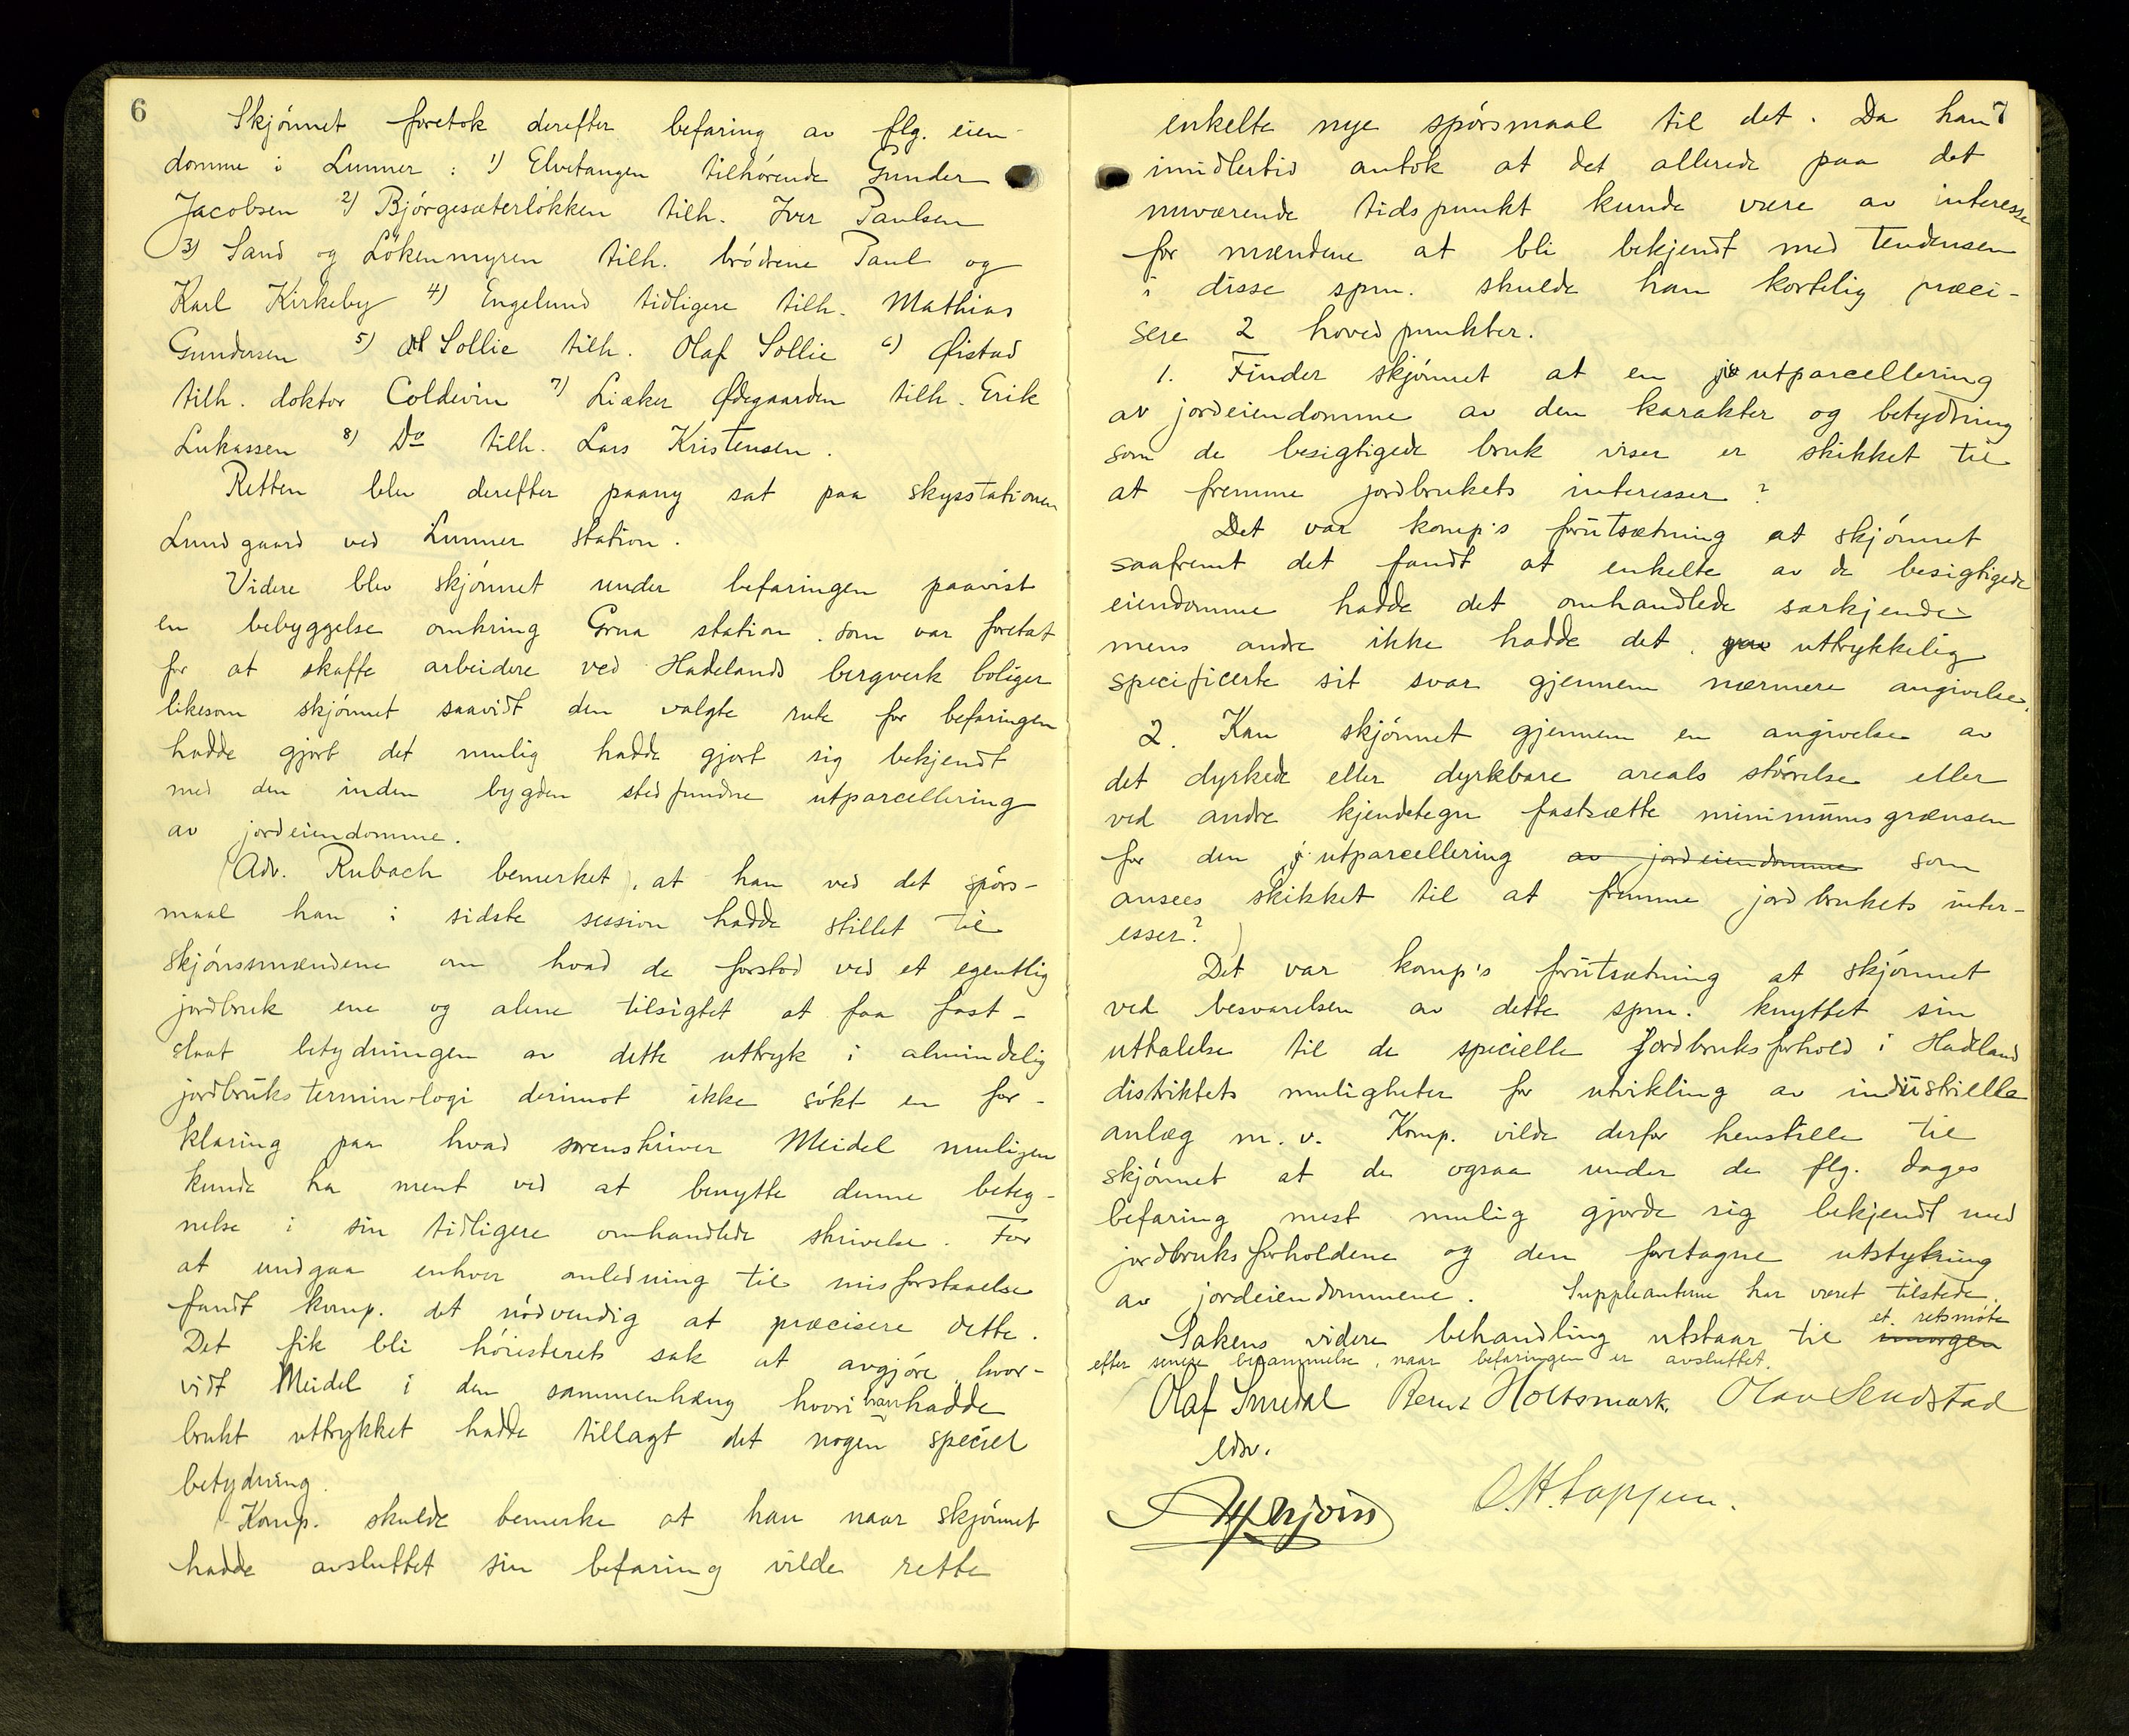 6
Skjönnet foretok derefter befaring av flg. eien-
domme i Lunner: 1) Elvetangen tilhörende Gunder
Jacobsen 2) Björgesæterlökken tilh. Iver Paulsen
3) Sand og Lökenmyren tilh. brödrene Paul og
Karl Kirkeby 4) Engelund tidligere tilh. Mathias
Gundersen 5) Sollie tilh. Olaf Sollie 6) Øistad
tilh. doktor Coldevin 7) Liæker Ødegaarden tilh. Erik
Lukassen 8) Do tilh. Lars Kristensen.
Retten blev derefter paany sat paa skysstationen
Lundgaard ved Lunner station.
Videre blev skjönnet under befaringen paavist
en bebyggelse omkring Grua station som var foretat
for at skaffe arbeidere ved Hadelands bergverk boliger
likesom skjönnet saavidt den valgte rute for befaringen
hadde gjort det mulig hadde gjort sig bekjendt
med den inden bygden stedfundne utparcellering
av jordeiendomme.
Adv. Rubach bemerket, at han ved det spörs-
maal han i sidste session hadde stillet til
skjönsmændene om hvad de forstod ved et egentlig
jordbruk ene og alene tilsigtet at faa fast-
slaat betydningen av dette uttryk i almindelig
jordbruksterminologi derimot ikke sökt en for-
klaring paa hvad sorenskriver Meidel muligen
kunde ha ment ved at benytte denne beteg-
nelse i sin tidligere omhandlede skrivelse. For
at undgaa enhver anledning til misforstaaelse
fandt komp. det nödvendig at præcisere dette.
Det fik bli höiesterets sak at avgjöre, hvor-
vidt Meidel i den sammenhæng hvori han hadde
brukt uttrykket hadde tillagt det nogen speciel
betydning.
Komp. skulde bemerke at han naar skjönnet
hadde avsluttet sin befaring vilde rette
7
enkelte nye spörsmaal til det. Da han
imidlertid antok at det allerede paa det
nuværende tidspunkt kunde være av interesse
for mændene at bli bekjendt med tendensen
i disse spm. skulde han kortelig præci-
sere 2 hovedpunkter.
1. Finder skjönnet at en utparcellering
av jordeiendomme av den karakter og betydning
som de besigtigede bruk viser er skikket til
at fremme jordbrukets interesser?
Det var komp's forutsætning at skjönnet
saafremt det fandt at enkelte av de besigtigede
eiendomme hadde det omhandlede særkjende
mens andre ikke hadde det, uttrykkelig
specificerte sit svar gjennem nærmere angivelse.
2. Kan skjönnet gjennem en angivelse av
det dyrkede eller dyrkbare areals störrelse eller
ved andre kjendetegn fastsætte minimumsgrænsen
for den utparcellering av jordeiendomme som
ansees skikket til at fremme jordbrukets inter-
esser?
Det var komp's forutsætning at skjönnet
ved besvarelsen av dette spm. knyttet sin
uttalelse til de specielle jordbruksforhold i Hadland
distriktets muligheter for utvikling av industrielle
anlæg m.v. Komp. vilde derfor henstille til
skjönnet at de ogsaa under de flg. dages
befaring mest mulig gjorde sig bekjendt med
jordbruksforholdene og den foretagne utstykning
av jordeiendommene. Suppleanterne har været tilstede.
Sakens videre behandling utstaar til imorgen et retsmöte
efter senere berammelse, naar befaringen er avsluttet.
Olaf Smedal Bernt Holtsmark. Olav Sendstad
edsv.